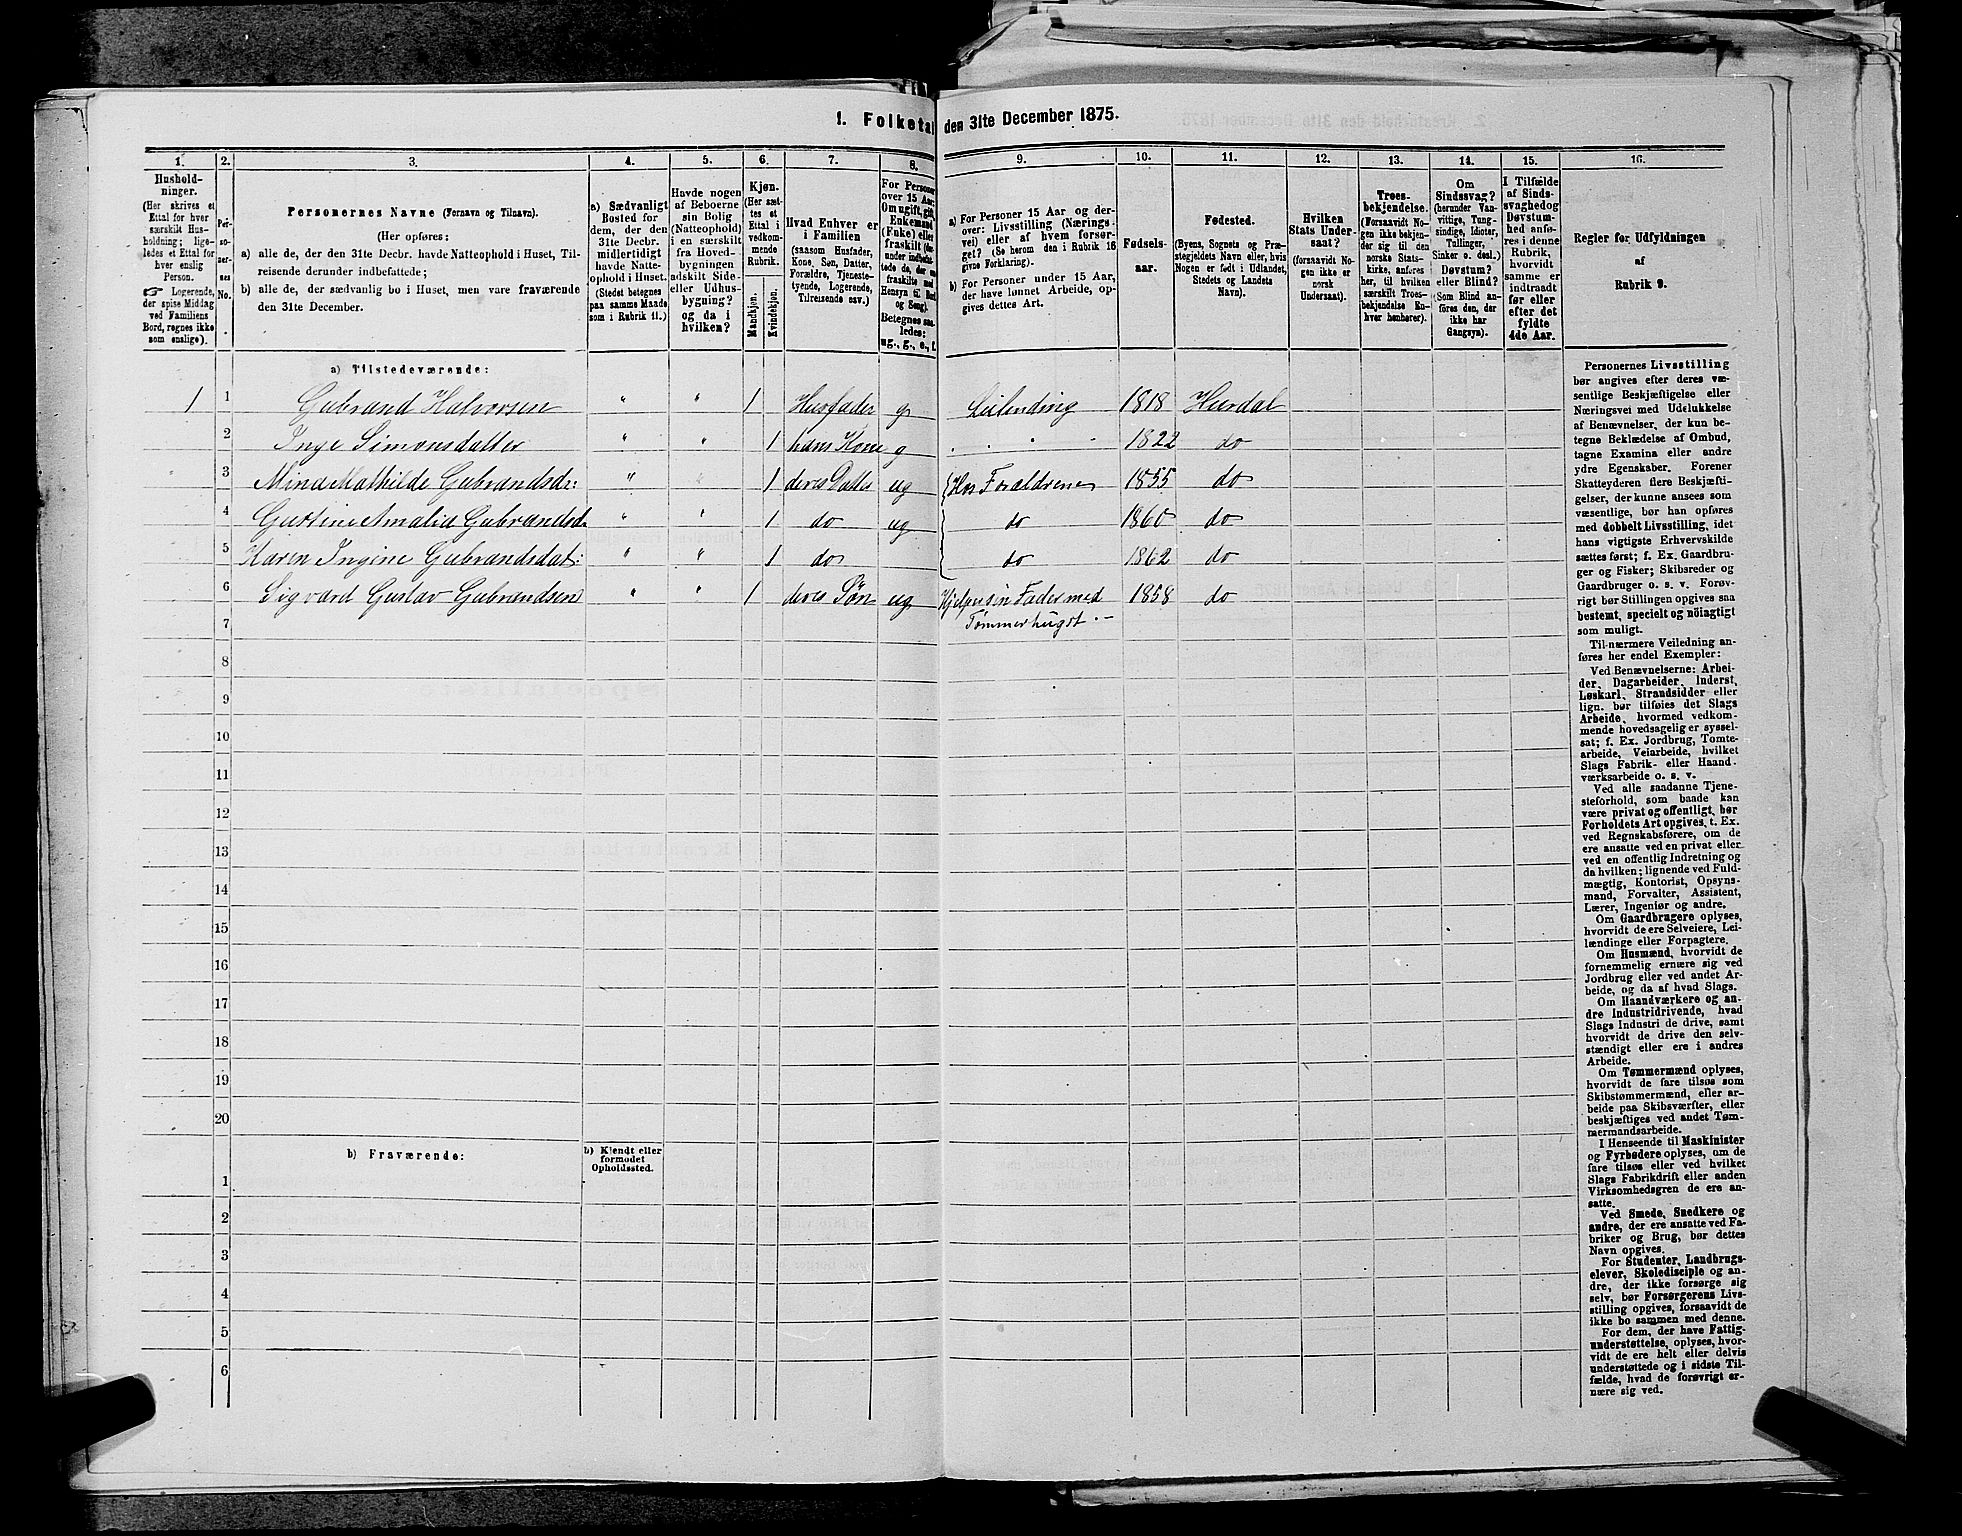 1. Folketal den 31te December 1875.
1.
2.
3.
4.
5.
6.
7.
8.
9.
10.
11.
12.
13.
14.
15.
16.
Hushold-
ninger.
(Her skrives et
Ettal for hver
særskilt Hus-
holdning; lige-
ledes et Ettal for
hver enslig
Person.
☞ Logerende,
der spise Middag
ved Familiens
Bord, regnes ikke
som enslige).
Per-
so-
ner-
nes
No.
Personernes Navne (Fornavn og Tilnavn).
(Her opføres:
a) alle de, der den 31te Decbr. havde Natteophold i Huset, Til-
reisende derunder indbefattede;
b) alle de, der sædvanlig bo i Huset, men vare fraværende
den 31te December.
a) Sædvanligt
Bosted for
dem, der den
31te Decbr.
midlertidigt
havde Natte-
ophold i Huset.
(Stedet betegnes
paa samme Maade
som i Rubrik 11.)
Havde nogen
af Beboerne
sin Bolig
(Natteophold)
i en særskilt
fra Hoved-
bygningen
adskilt Side-
eller Udhus-
bygning?
og da i
hvilken?
Kjøn.
(Her sæt-
tes et
Ettal i
vedkom-
mende
Rubrik.
Mandkjøn.
Kvindekjøn.
Hvad Enhver er
i Familien
(saasom Husfader,
Kone, Søn, Datter,
Forældre, Tjeneste-
tyende, Logerende,
Tilreisende osv.)
For Personer
over 15 Aar:
Om ugift, gift,
Enkemand
(Enke) eller
fraskilt (der-
under indbefat-
tede de, der ere
fraskilte med
Hensyn til Bord
og Seng).
Betegnes saa-
ledes:
ug., g., e., f.
a) For Personer 15 Aar og der-
over: Livsstilling (Nærings-
vei) eller af hvem forsør-
get? (Se herom den i Rubrik 16
givne Forklaring).
b) For Personer under 15 Aar,
der have lønnet Arbeide, op-
gives dettes Art.
Fødsels-
aar.
Fødested.
(Byens, Sognets og Præ-
stegjeldets Navn eller, hvis
Nogen er født i Udlandet,
Stedets og Landets
Navn).
Hvilken
Stats Under-
saat?
(forsaavidt No-
gen ikke er
norsk
Undersaat).
Troes-
bekjendelse.
(Forsaavidt No-
gen ikke bekjen-
der sig til den
norske Stats-
kirke, anføres
her, til hvilken
særskilt Troes-
bekjendelse En-
hver henhører).
Om
Sindssvag?
(herunder Van-
vittige, Tung-
sindige, Idioter,
Tullinger,
Sinker o. desl.)
Døvstum?
eller Blind?
(Som Blind an-
føres den, der
ikke har
Gangsyn).
I Tilfælde
af Sinds-
svaghed og
Døvstum-
hed anfø-
res i denne
Rubrik,
hvorvidt
samme er
indtraadt
før eller
efter det
fyldte
4de Aar.
Regler for Udfyldningen
af
Rubrik 9.
a) Tilstedeværende:
1 1 Gubrand Halvorsen " " 1 Husfader g Leilending 1818 Hurdal
2 Inge Simonsdatter " " 1 hans Kone g " " " 1822 do
3 Mina Mathilde Gubrandsdr: " " 1 deres Datter ug Hos Forældrene 1855 do
4 Gustine Amalia Gubrandsd. " " 1 do ug do 1860 do
5 Karen Ingine Gubrandsdat: " " 1 do do 1862 do
6 Sigvard Gustav Gubrandsen " " 1 deres Søn ug Hjelper sin Fader med 1858 do
7 Tømmerhugst. —
8
9
10
11
12
13
14
15
16
17
18
19
20
b) Fraværende:
b) Kjendt eller
formodet
Opholdssted.
1
2
3
4
5
6
Personernes Livsstilling
bør angives efter deres væ-
sentlige Beskjæftigelse eller
Næringsvei med Udelukkelse
af Benævnelser, der kun be-
tegne Beklædelse af Ombud,
tagne Examina eller andre
ydre Egenskaber. Forener
Skatteyderen flere Beskjæfti-
gelser, der kunne ansees som
væsentlige, bør han opføres
med dobbelt Livsstilling, idet
hans vigtigste Erhvervskilde
sættes først; f. Ex. Gaardbru-
ger og Fisker; Skibsreder og
Gaardbruger o. s. v. Forøv-
rigt bør Stillingen opgives saa
bestemt, specielt og nöiagtigt
som muligt.
Til nærmere Veiledning an-
føres her endel Exempler:
Ved Benævnelserne: Arbei-
der, Dagarbeider, Inderst,
Løskarl, Strandsidder eller
lign. bør tilføies det Slags
Arbeide, hvormed vedkom-
mende hovedsagelig er syssel-
sat; f. Ex. Jordbrug, Tomte-
arbeide, Veiarbeide, hvilket
Slags Fabrik- eller Haand-
værksarbeide o. s. v.
Ved alle saadanne Tjene-
steforhold, som baade kan
være privat og offentligt, bør
Forholdets Art opgives, t. Ex.
ved Regnskabsførere, om de
ere ansatte ved en privat eller
ved en offentlig Indretning og
da hvilken; lignende ved Fuld-
mægtig, Kontorist, Opsyns-
mand, Forvalter, Assistent,
Lærer, Ingeniør og andre.
Om Gaardbrugere oplyses,
hvorvidt de ere Selveiere, Lei-
lændinge eller Forpagtere.
Om Husmænd, hvorvidt de
fornemmelig ernære sig ved
Jordbrug eller ved andet Ar-
beide, og da af hvad Slags.
Om Haandværkere og an-
dre Industridrivende, hvad
Slags Industri de drive, samt
hvorvidt de drive den selv-
stændigt eller ere i andres
Arbeide.
Om Tømmermænd oplyses,
hvorvidt de fare tilsøs som
Skibstømmermænd, eller ar-
beide paa Skibsværfter, eller
beskjæftiges ved andet Tøm-
mermandsarbeide.
I Henseende til Maskinister
og Fyrbødere oplyses, om de
fare tilsøs eller ved hvilket
Slags Fabrikdrift eller anden
Virksomhedsgren de ere an-
satte.
Ved Smede, Snedkere og
andre, der ere ansatte ved Fa-
briker og Brug, bør dettes
Navn opgives.
For Studenter, Landbrugs-
elever, Skoledisciple og an-
dre, der ikke forsørge sig
selv, bør Forsørgerens Livs-
stilling opgives, forsaavidt de
ikke bo sammen med denne.
For dem, der have Fattig-
understøttelse, oplyses, hvor-
vidt de ere helt eller delvis
understøttede og i sidste Til-
fælde, hvad de forøvrigt er-
nære sig ved.